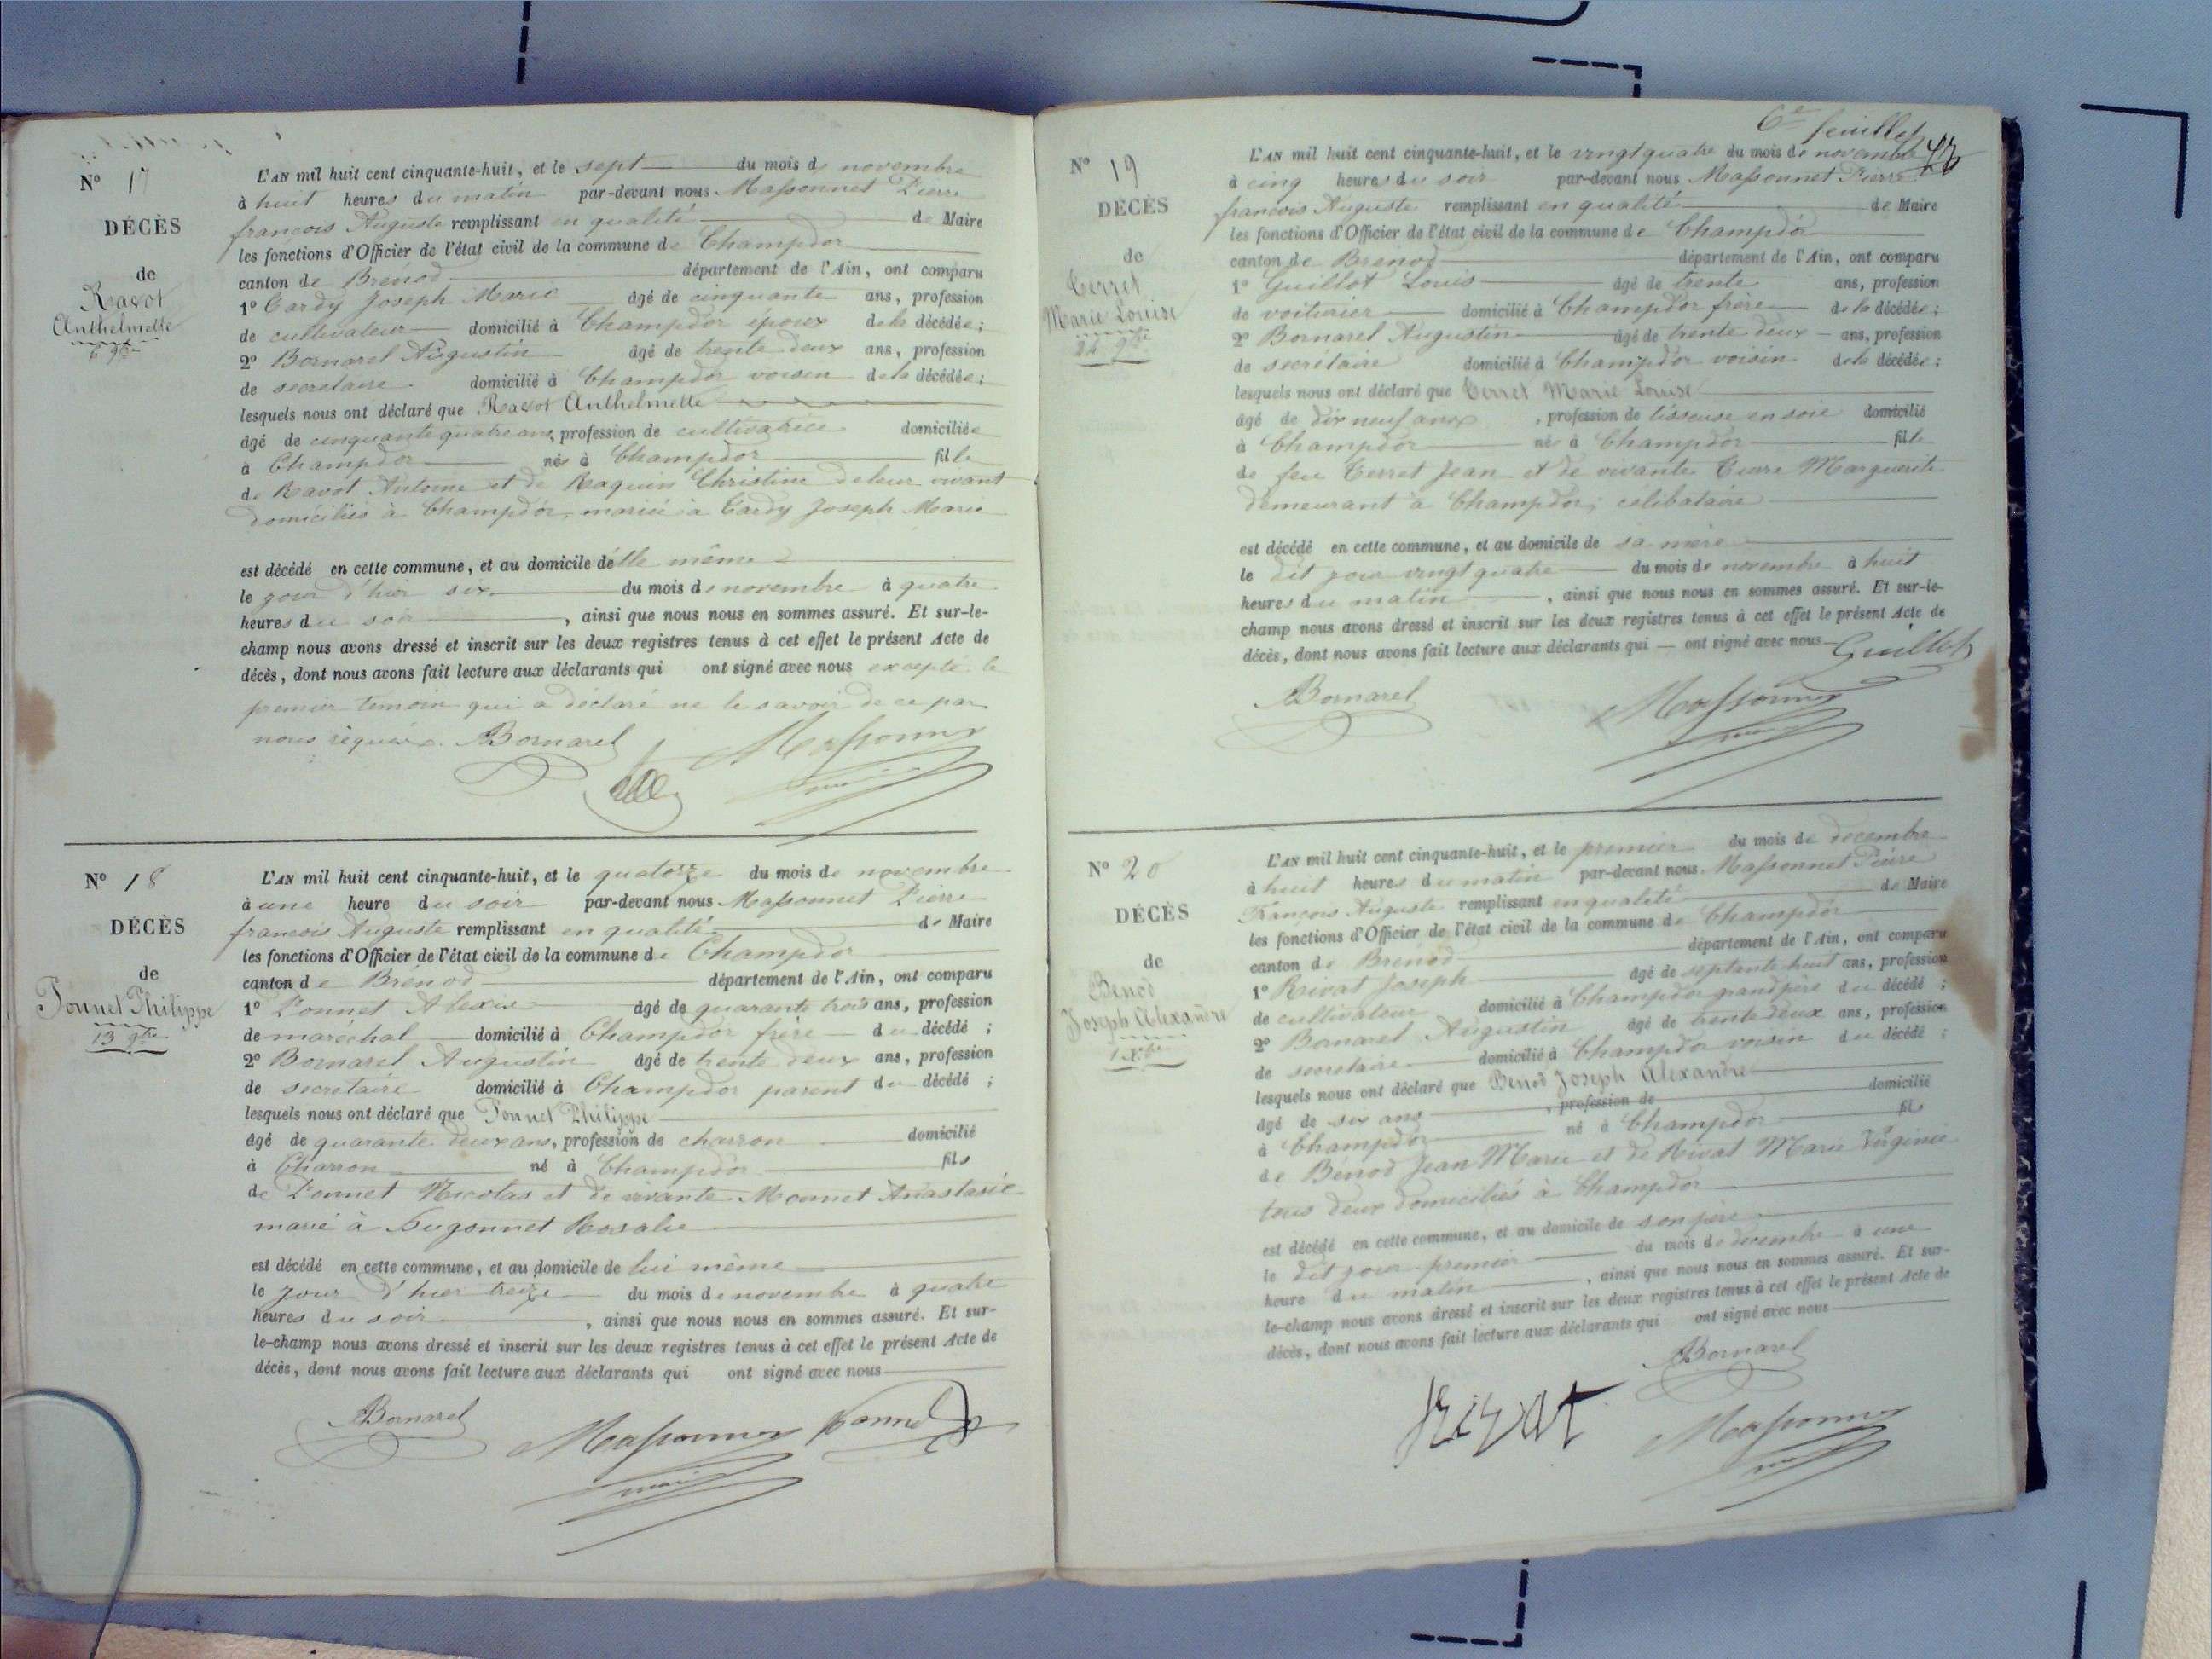 N° 17
DÉCÈS
de
Ravot
Anthelmette
6 9bre
L'AN mil huit cent cinquante-huit, et le sept du mois de novembre
à huit heures du matin par-devant nous Massonnet Pierre
françois Auguste remplissant en qualité de Maire
les fonctions d'Officier de l'état civil de la commune de Champdor
canton de Brénod département de l'Ain, ont comparu
1° Tardy Joseph Marie âgé de cinquante ans, profession
de cultivateur domicilié à Champdor époux de la décédée;
2° Bornarel Augustin âgé de trente deux ans, profession
de secretaire domicilié à Champdor voisin de la décédée;
lesquels nous ont déclaré que Ravot Anthelmette
âgé de cinquante quatre ans, profession de cultivatrice domiciliée
à Champdor née à Champdor fille
de Ravot Antoine et de Raquin Christine de leur vivant
domiciliés à Champdor, mariée à Tardy Joseph Marie
est décédé en cette commune, et au domicile d'elle même
le jour d'hier six du mois de novembre à quatre
heures du soir, ainsi que nous nous en sommes assuré. Et sur-le-
champ nous avons dressé et inscrit sur les deux registres tenus à cet effet le présent Acte de
décès, dont nous avons fait lecture aux déclarants qui ont signé avec nous excepté le
premier témoin qui a déclaré ne le savoir de ce par
nous requis. Bornarel Massonnet
N° 18
DÉCÈS
de
Ponnet Philippe
13 9bre
L'AN mil huit cent cinquante-huit, et le quatorze du mois de novembre
à une heure du soir par-devant nous Massonnet Pierre
françois Auguste remplissant en qualité de Maire
les fonctions d'Officier de l'état civil de la commune de Champdor
canton de Brénod département de l'Ain, ont comparu
1° Ponnet Alexis âgé de quarante trois ans, profession
de maréchal domicilié à Champdor frère du décédé;
2° Bornarel Augustin âgé de trente deux ans, profession
de secretaire domicilié à Champdor parent du décédé;
lesquels nous ont déclaré que Ponnet Philippe
âgé de quarante deux ans, profession de charron domicilié
à Charron né à Champdor fils
de Ponnet Nicolas et de vivante Monnet Anastasie
marié à Hugonnet Rosalie
est décédé en cette commune, et au domicile de lui même
le jour d'hier treize du mois de novembre à quatre
heures du soir, ainsi que nous nous en sommes assuré. Et sur-
le-champ nous avons dressé et inscrit sur les deux registres tenus à cet effet le présent Acte de
décès, dont nous avons fait lecture aux déclarants qui ont signé avec nous
Bornarel Massonnet Ponnet
maire
6e feuillet
N° 19
DÉCÈS
de
Terret
Marie Louise
24 9bre
L'AN mil huit cent cinquante-huit, et le vingt quatre du mois de novembre
à cinq heures du soir par-devant nous Massonnet Pierre
françois Auguste remplissant en qualité de Maire
les fonctions d'Officier de l'état civil de la commune de Champdor
canton de Brénod département de l'Ain, ont comparu
1° Guillot Louis âgé de trente ans, profession
de voiturier domicilié à Champdor frère de la décédée;
2° Bornarel Augustin âgé de trente deux ans, profession
de secrétaire domicilié à Champdor voisin de la décédée;
lesquels nous ont déclaré que Terret Marie Louise
âgé de dix neuf ans, profession de tisseuse en soie domicilié
à Champdor née à Champdor fille
de feu Terret Jean et de vivante Marguerite
demeurant à Champdor, célibataire
est décédé en cette commune, et au domicile de sa mère
le dit jour vingt quatre du mois de novembre à huit
heures du matin, ainsi que nous nous en sommes assuré. Et sur-le-
champ nous avons dressé et inscrit sur les deux registres tenus à cet effet le présent Acte de
décès, dont nous avons fait lecture aux déclarants qui ont signé avec nous Guillot
Bornarel Massonnet
N° 20
DÉCÈS
de
Benod
Joseph Alexandre
1 Xbre
L'AN mil huit cent cinquante-huit, et le premier du mois de decembre
à huit heures du matin par-devant nous Massonnet Pierre
François Auguste remplissant en qualité de Maire
les fonctions d'Officier de l'état civil de la commune de Champdor
canton de Brénod département de l'Ain, ont comparu
1° Rivat Joseph âgé de septante huit ans, profession
de cultivateur domicilié à Champdor grand père du décédé;
2° Bornarel Augustin âgé de trente deux ans, profession
de secretaire domicilié à Champdor voisin du décédé;
lesquels nous ont déclaré que Benod Joseph Alexandre
âgé de six ans, profession de domicilié
à Champdor né à Champdor fils
de Benod Jean Marie et de Rivat Marie Virginie
tous deux domiciliés à Champdor
est décédé en cette commune, et au domicile de son père
le dit jour premier du mois de decembre à une
heure du matin, ainsi que nous nous en sommes assuré. Et sur-
le-champ nous avons dressé et inscrit sur les deux registres tenus à cet effet le présent Acte de
décès, dont nous avons fait lecture aux déclarants qui ont signé avec nous
Bornarel
Rivat Massonnet